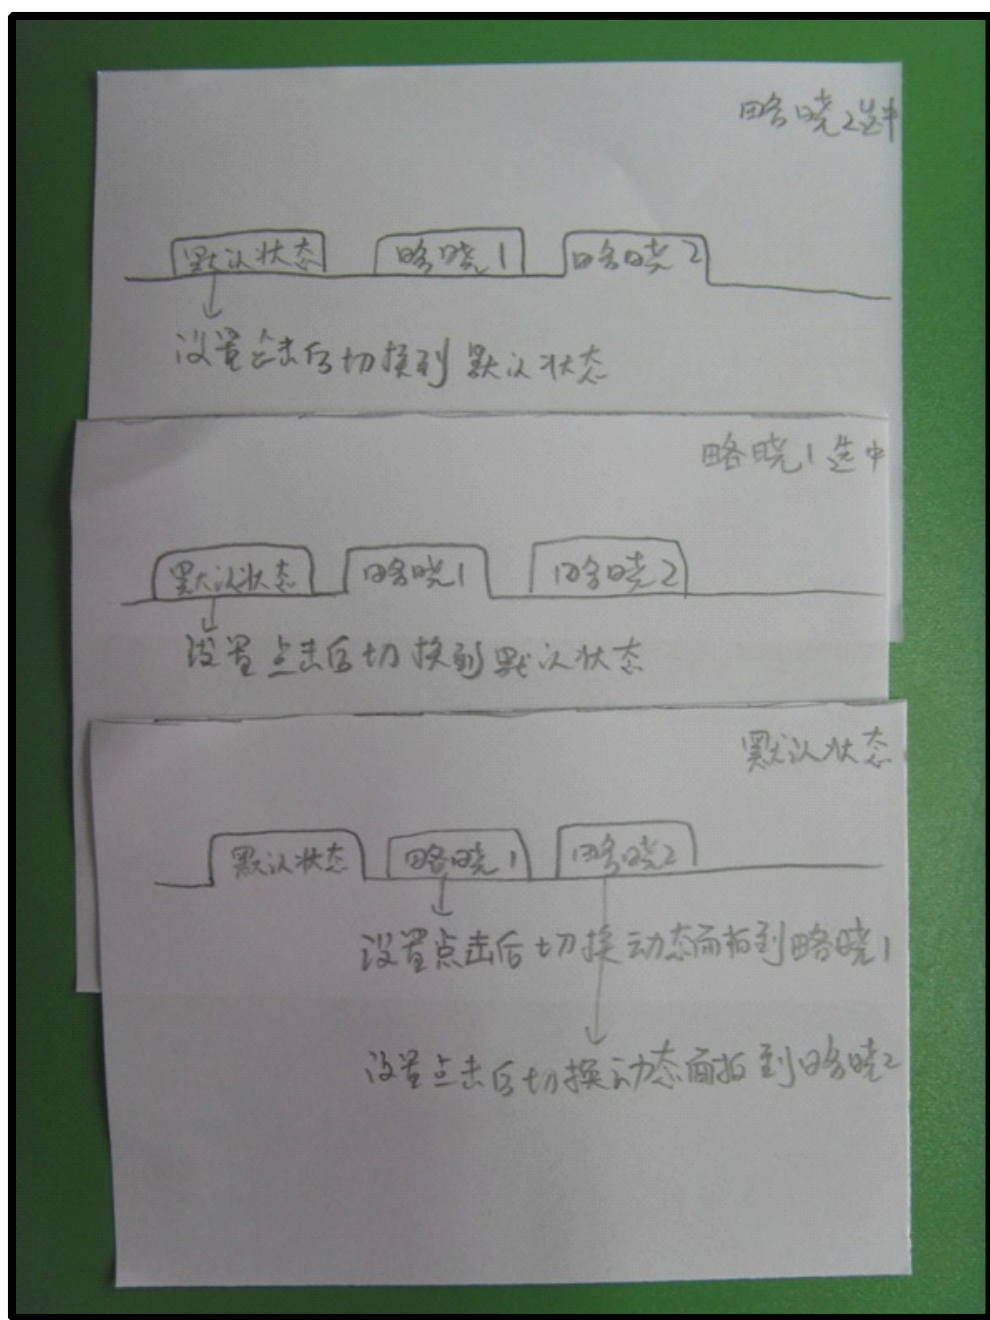 略晓2选中
默认状态 略晓1 略晓2
设置点击后切换到默认状态
略晓1选中
默认状态 略晓1 略晓2
设置点击后切换到默认状态
默认状态
默认状态 略晓1 略晓2
设置点击后切换动态面板到略晓1
设置点击后切换动态面板到略晓2